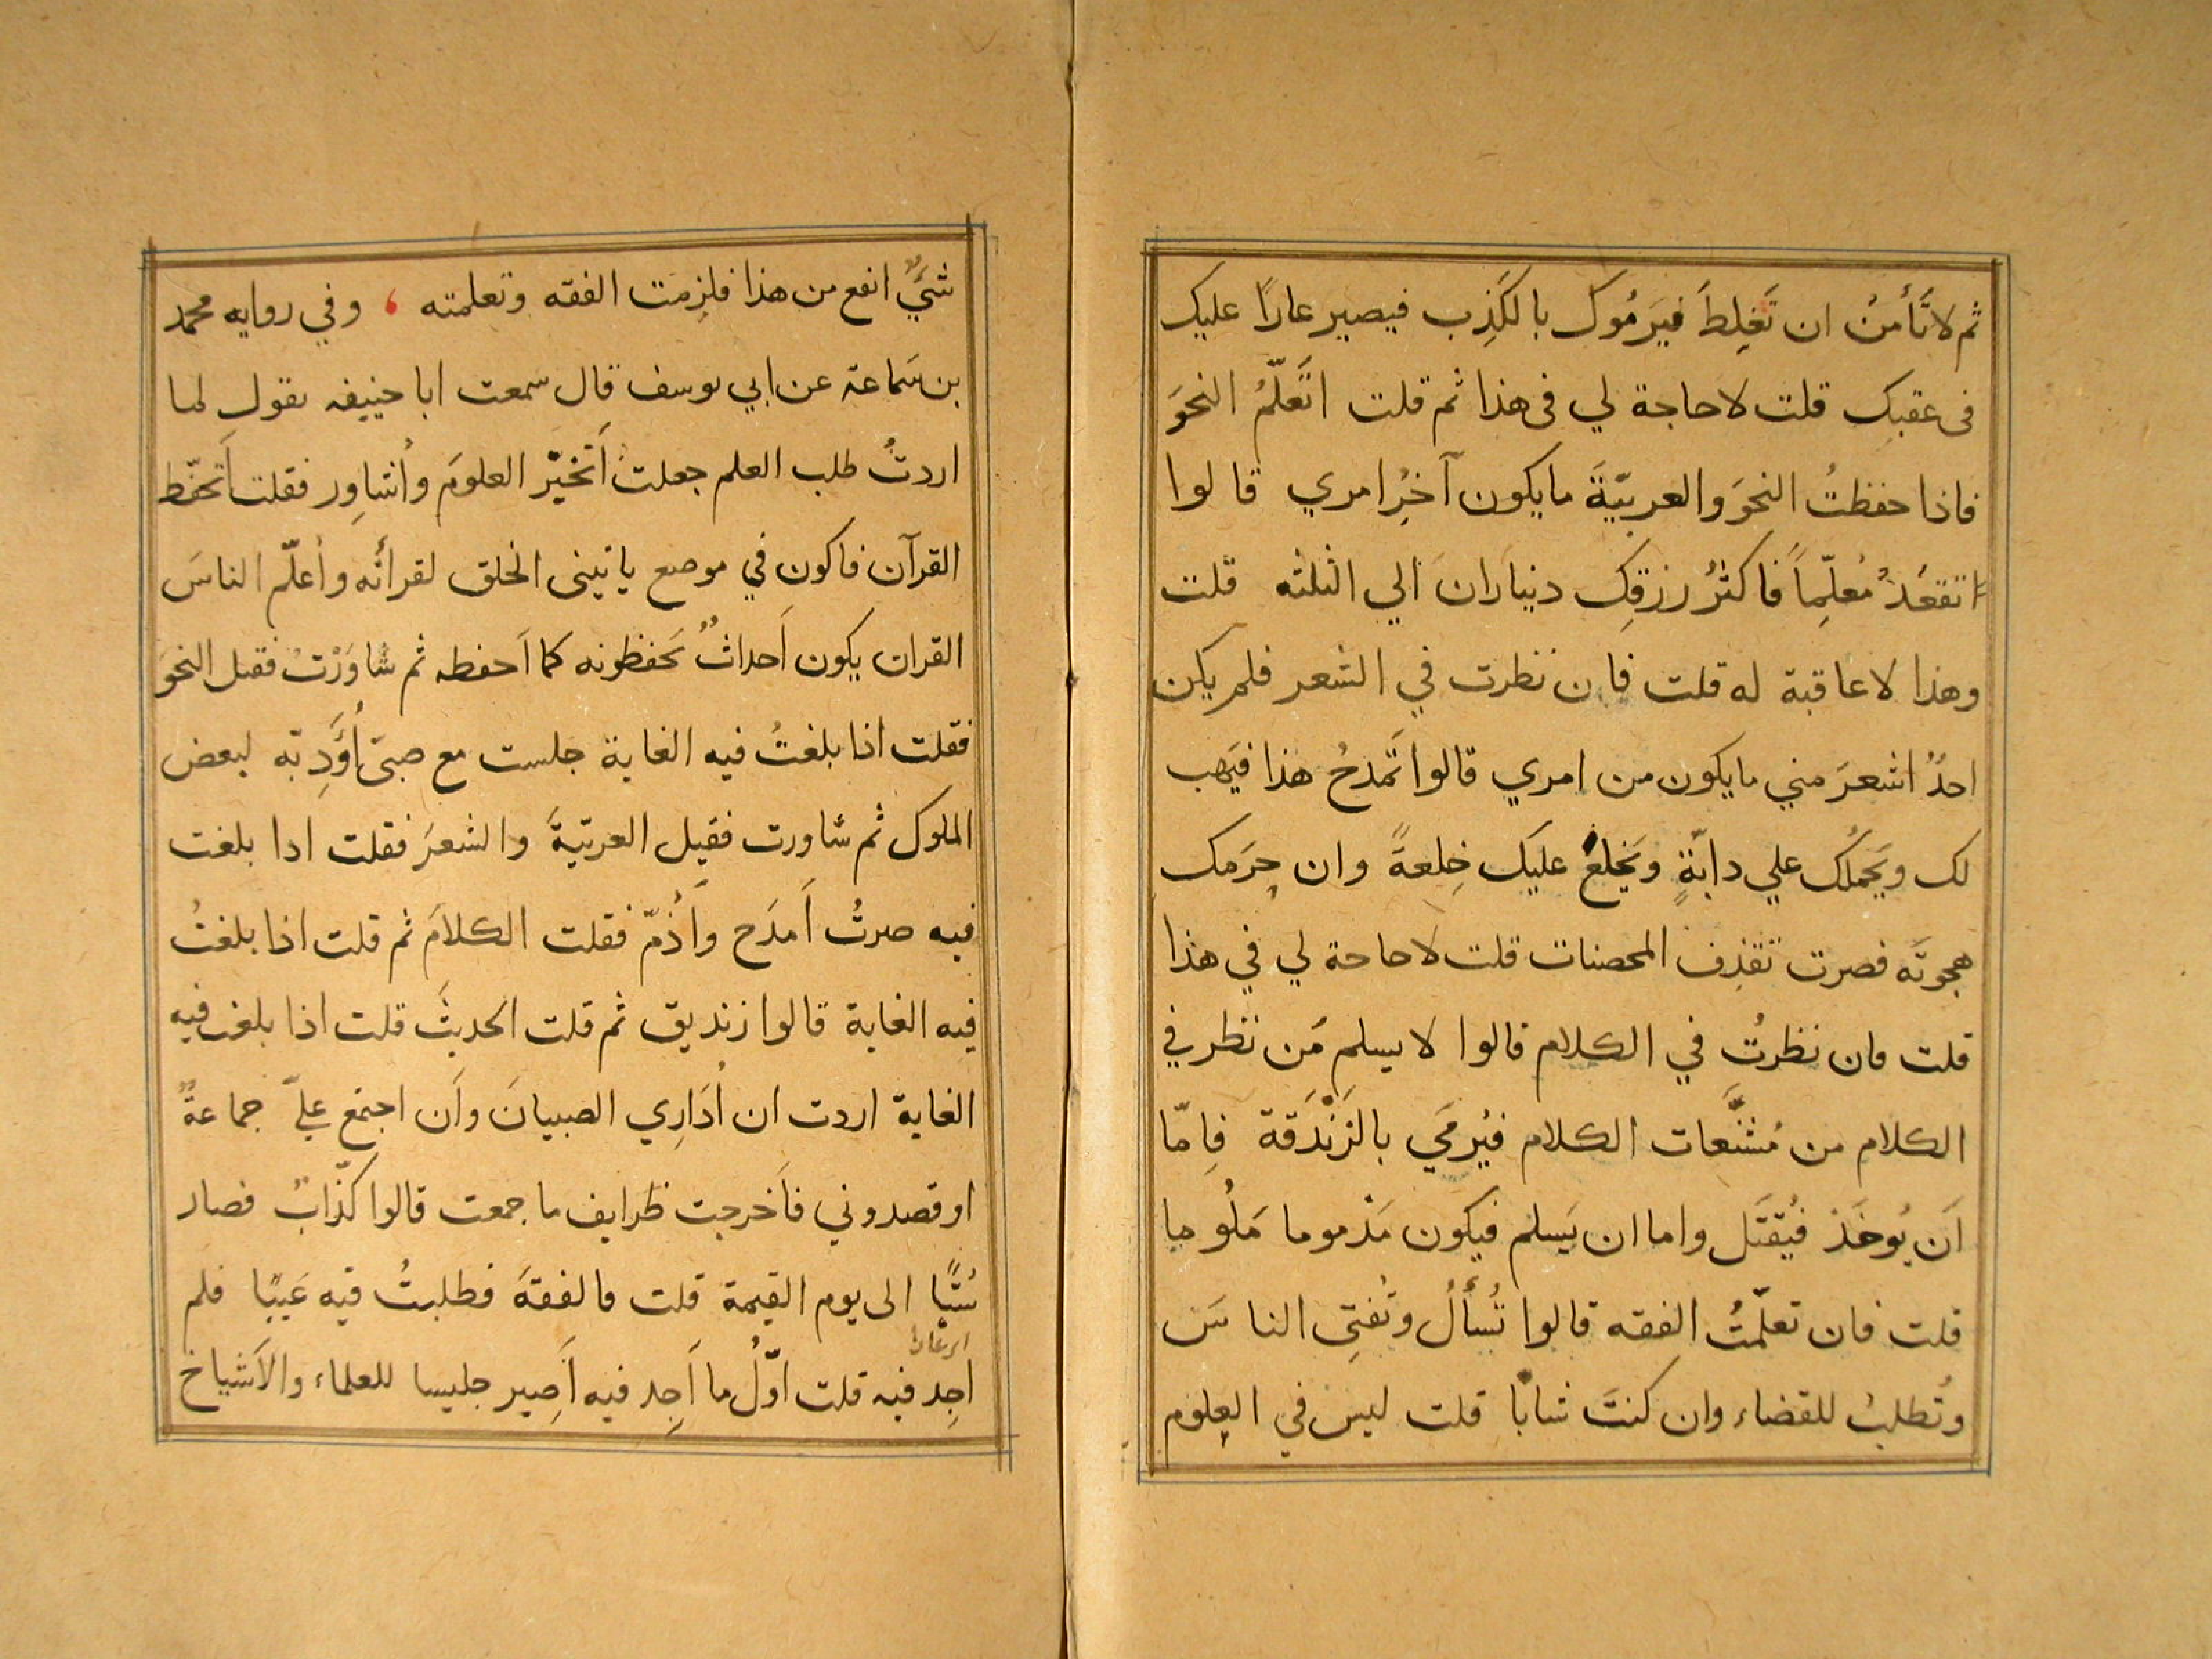 ثم لا تَأمنُ ان تَغلِطَ فيَرمُوك بالكَذِب فيصير عارًا عليك
فى عقبك قلت لا حاجة لي فى هذا ثم قلت اتَعَلّمُ النحوَ
فاذا حفظتُ النحوَ والعربيّةَ ما يكون آخِرُ امري قالوا
تقعُدُ مُعلِّماً فاكثرُ رزقِك ديناران الي الثلثه قلت
وهذا لا عاقبة له قلت فان نظرت في الشعر فلم يكن
احدٌ اشعرَ مني ما يكون من امري قالوا تَمدحُ هذا فيَهب
لك ويَحملُك علي دابّةٍ ويَخلعُ عليك خِلعةً وان حِرَمك
هجوتَه فصرت تقذِف المحصنات قلت لا حاحة لي في هذا
قلت فان نظرتُ في الكلام قالوا لا يسلم مَن نظر في
الكلام من مُشنَّعات الكلام فيُرمَي بالزَنْدَقة فاِمّا
اَن يُوخَذ فيُقتَل واما ان يَسلم فيكون مَذموما مَلُوما
قلت فان تعلّمتُ الفقه قالوا تُسأَلُ وتُفتِى الناسَ
وتُطلبُ للقضاء وان كنتَ شابًا قلت ليس في العلوم
شيٌَ انفع من هذا فلزِمت الفقه وتعلمته ، وفي روايه محمد
بن سَماعة عن ابي يوسف قال سمعت ابا حنيفه يقول لما
اردتُ طلب العلم جعلت اَتَخيَّر العلومَ واُشاوِر فقلت اَتحفّط
القرآن فاكون في موضع ياتينى الخلق لقرأته واُعلّم الناسَ
القران يكون اَحداثٌ يَحفظونه كما اَحفطه ثم شاوَرْتُ فقيل النحوَ
فقلت اذا بلغتُ فيه الغاية جلست مع صبىّ اُؤَدِبّه لبعض
الملوك ثم شاورت فقيل العربيّةَ والشعرَ فقلت ادا بلغت
فيه صرتُ اَمدَح واَذُمّ فقلت الكلامَ ثم قلت اذا بلغتُ
فيه الغاية قالوا زنديق ثم قلت الحديثَ قلت اذا بلغت فيه
الغاية اردت ان اُدَارِي الصبيانَ واَن اجتمع عليّ جماعةٌ
او قصدوني فاَخرجت ظرايف ما جمعت قالوا كذّابٌ فصار
سُبًّا الى يوم القيمة قلت فالفقهَ فطلبتُ فيه عَيبًا فلم
اجِد فيه قلت اوّلُ ما اَجِد فيه اَصِير جليسا للعلماء والاَشياخ